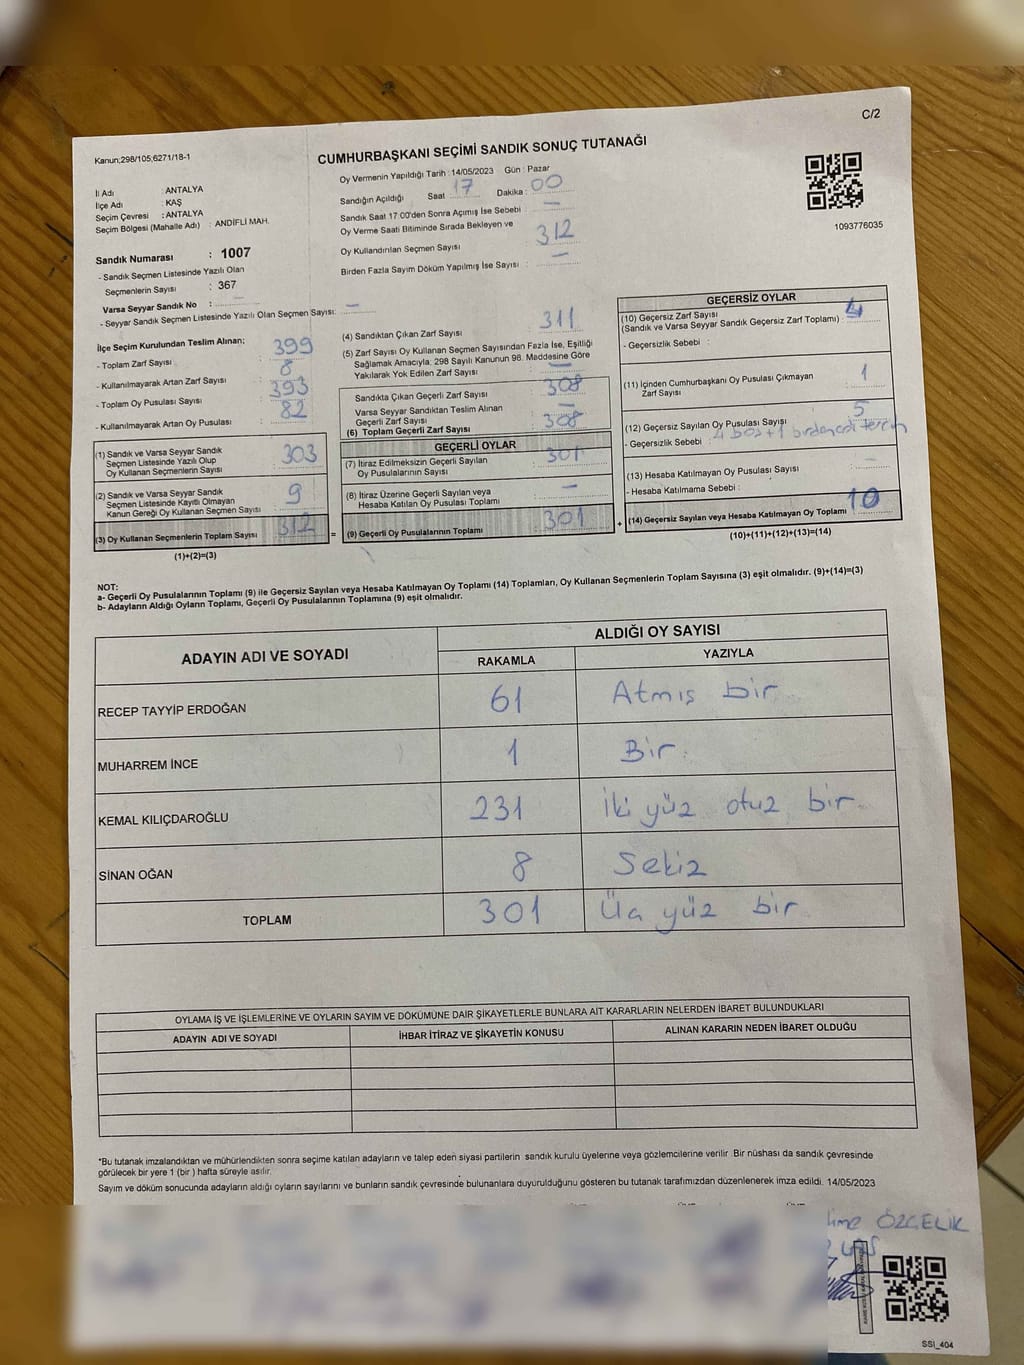 C/2
Kanun;298/105;6271/18-1
CUMHURBAŞKANI SEÇİMİ SANDIK SONUÇ TUTANAĞI
Oy Vermenin Yapıldığı Tarih : 14/05/2023 Gün : Pazar
İl Adı : ANTALYA
İlçe Adı : KAŞ
Seçim Çevresi : ANTALYA
Seçim Bölgesi (Mahalle Adı) : ANDİFLİ MAH.
Sandığın Açıldığı Saat 17 Dakika : 00
Sandık Saat 17:00'den Sonra Açımış İse Sebebi : —
Oy Verme Saati Bitiminde Sırada Bekleyen ve
Oy Kullandırılan Seçmen Sayısı : 312
Birden Fazla Sayım Döküm Yapılmış İse Sayısı : —
1093776035
Sandık Numarası : 1007
- Sandık Seçmen Listesinde Yazılı Olan
Seçmenlerin Sayısı : 367
Varsa Seyyar Sandık No : —
- Seyyar Sandık Seçmen Listesinde Yazılı Olan Seçmen Sayısı: —
İlçe Seçim Kurulundan Teslim Alınan;
- Toplam Zarf Sayısı : 399
- Kullanılmayarak Artan Zarf Sayısı : 8
- Toplam Oy Pusulası Sayısı : 393
- Kullanılmayarak Artan Oy Pusulası : 82
(1) Sandık ve Varsa Seyyar Sandık
Seçmen Listesinde Yazılı Olup
Oy Kullanan Seçmenlerin Sayısı : 303
(2) Sandık ve Varsa Seyyar Sandık
Seçmen Listesinde Kayıtlı Olmayan
Kanun Gereği Oy Kullanan Seçmen Sayısı : 9
(3) Oy Kullanan Seçmenlerin Toplam Sayısı : 312
(1)+(2)=(3)
(4) Sandıktan Çıkan Zarf Sayısı : 311
(5) Zarf Sayısı Oy Kullanan Seçmen Sayısından Fazla İse, Eşitliği
Sağlamak Amacıyla; 298 Sayılı Kanunun 98. Maddesine Göre
Yakılarak Yok Edilen Zarf Sayısı : —
Sandıkta Çıkan Geçerli Zarf Sayısı : 308
Varsa Seyyar Sandıktan Teslim Alınan
Geçerli Zarf Sayısı : —
(6) Toplam Geçerli Zarf Sayısı : 308
GEÇERLİ OYLAR
(7) İtiraz Edilmeksizin Geçerli Sayılan
Oy Pusulalarının Sayısı : 301
(8) İtiraz Üzerine Geçerli Sayılan veya
Hesaba Katılan Oy Pusulası Toplamı : —
= (9) Geçerli Oy Pusulalarının Toplamı : 301
GEÇERSİZ OYLAR
(10) Geçersiz Zarf Sayısı
(Sandık ve Varsa Seyyar Sandık Geçersiz Zarf Toplamı) : 4
- Geçersizlik Sebebi :
(11) İçinden Cumhurbaşkanı Oy Pusulası Çıkmayan
Zarf Sayısı : 1
(12) Geçersiz Sayılan Oy Pusulası Sayısı : 5
- Geçersizlik Sebebi : 4 boş + 1 tercih
(13) Hesaba Katılmayan Oy Pusulası Sayısı : —
- Hesaba Katılmama Sebebi :
+ (14) Geçersiz Sayılan veya Hesaba Katılmayan Oy Toplamı : 10
(10)+(11)+(12)+(13)=(14)
NOT:
a- Geçerli Oy Pusulalarının Toplamı (9) ile Geçersiz Sayılan veya Hesaba Katılmayan Oy Toplamı (14) Toplamları, Oy Kullanan Seçmenlerin Toplam Sayısına (3) eşit olmalıdır. (9)+(14)=(3)
b- Adayların Aldığı Oyların Toplamı, Geçerli Oy Pusulalarının Toplamına (9) eşit olmalıdır.
ADAYIN ADI VE SOYADI
ALDIĞI OY SAYISI
RAKAMLA YAZIYLA
RECEP TAYYİP ERDOĞAN 61 Atmış bir
MUHARREM İNCE 1 Bir.
KEMAL KILIÇDAROĞLU 231 İki yüz otuz bir
SİNAN OĞAN 8 Sekiz
TOPLAM 301 Üç yüz bir
OYLAMA İŞ VE İŞLEMLERİNE VE OYLARIN SAYIM VE DÖKÜMÜNE DAİR ŞİKAYETLERLE BUNLARA AİT KARARLARIN NELERDEN İBARET BULUNDUKLARI
ADAYIN ADI VE SOYADI İHBAR İTİRAZ VE ŞİKAYETİN KONUSU ALINAN KARARIN NEDEN İBARET OLDUĞU
*Bu tutanak imzalandıktan ve mühürlendikten sonra seçime katılan adayların ve talep eden siyasi partilerin sandık kurulu üyelerine veya gözlemcilerine verilir .Bir nüshası da sandık çevresinde
görülecek bir yere 1 (bir ) hafta süreyle asılır.
Sayım ve döküm sonucunda adayların aldığı oyların sayılarını ve bunların sandık çevresinde bulunanlara duyurulduğunu gösteren bu tutanak tarafımızdan düzenlenerek imza edildi. 14/05/2023
ÖZÇELİK
SSİ_404